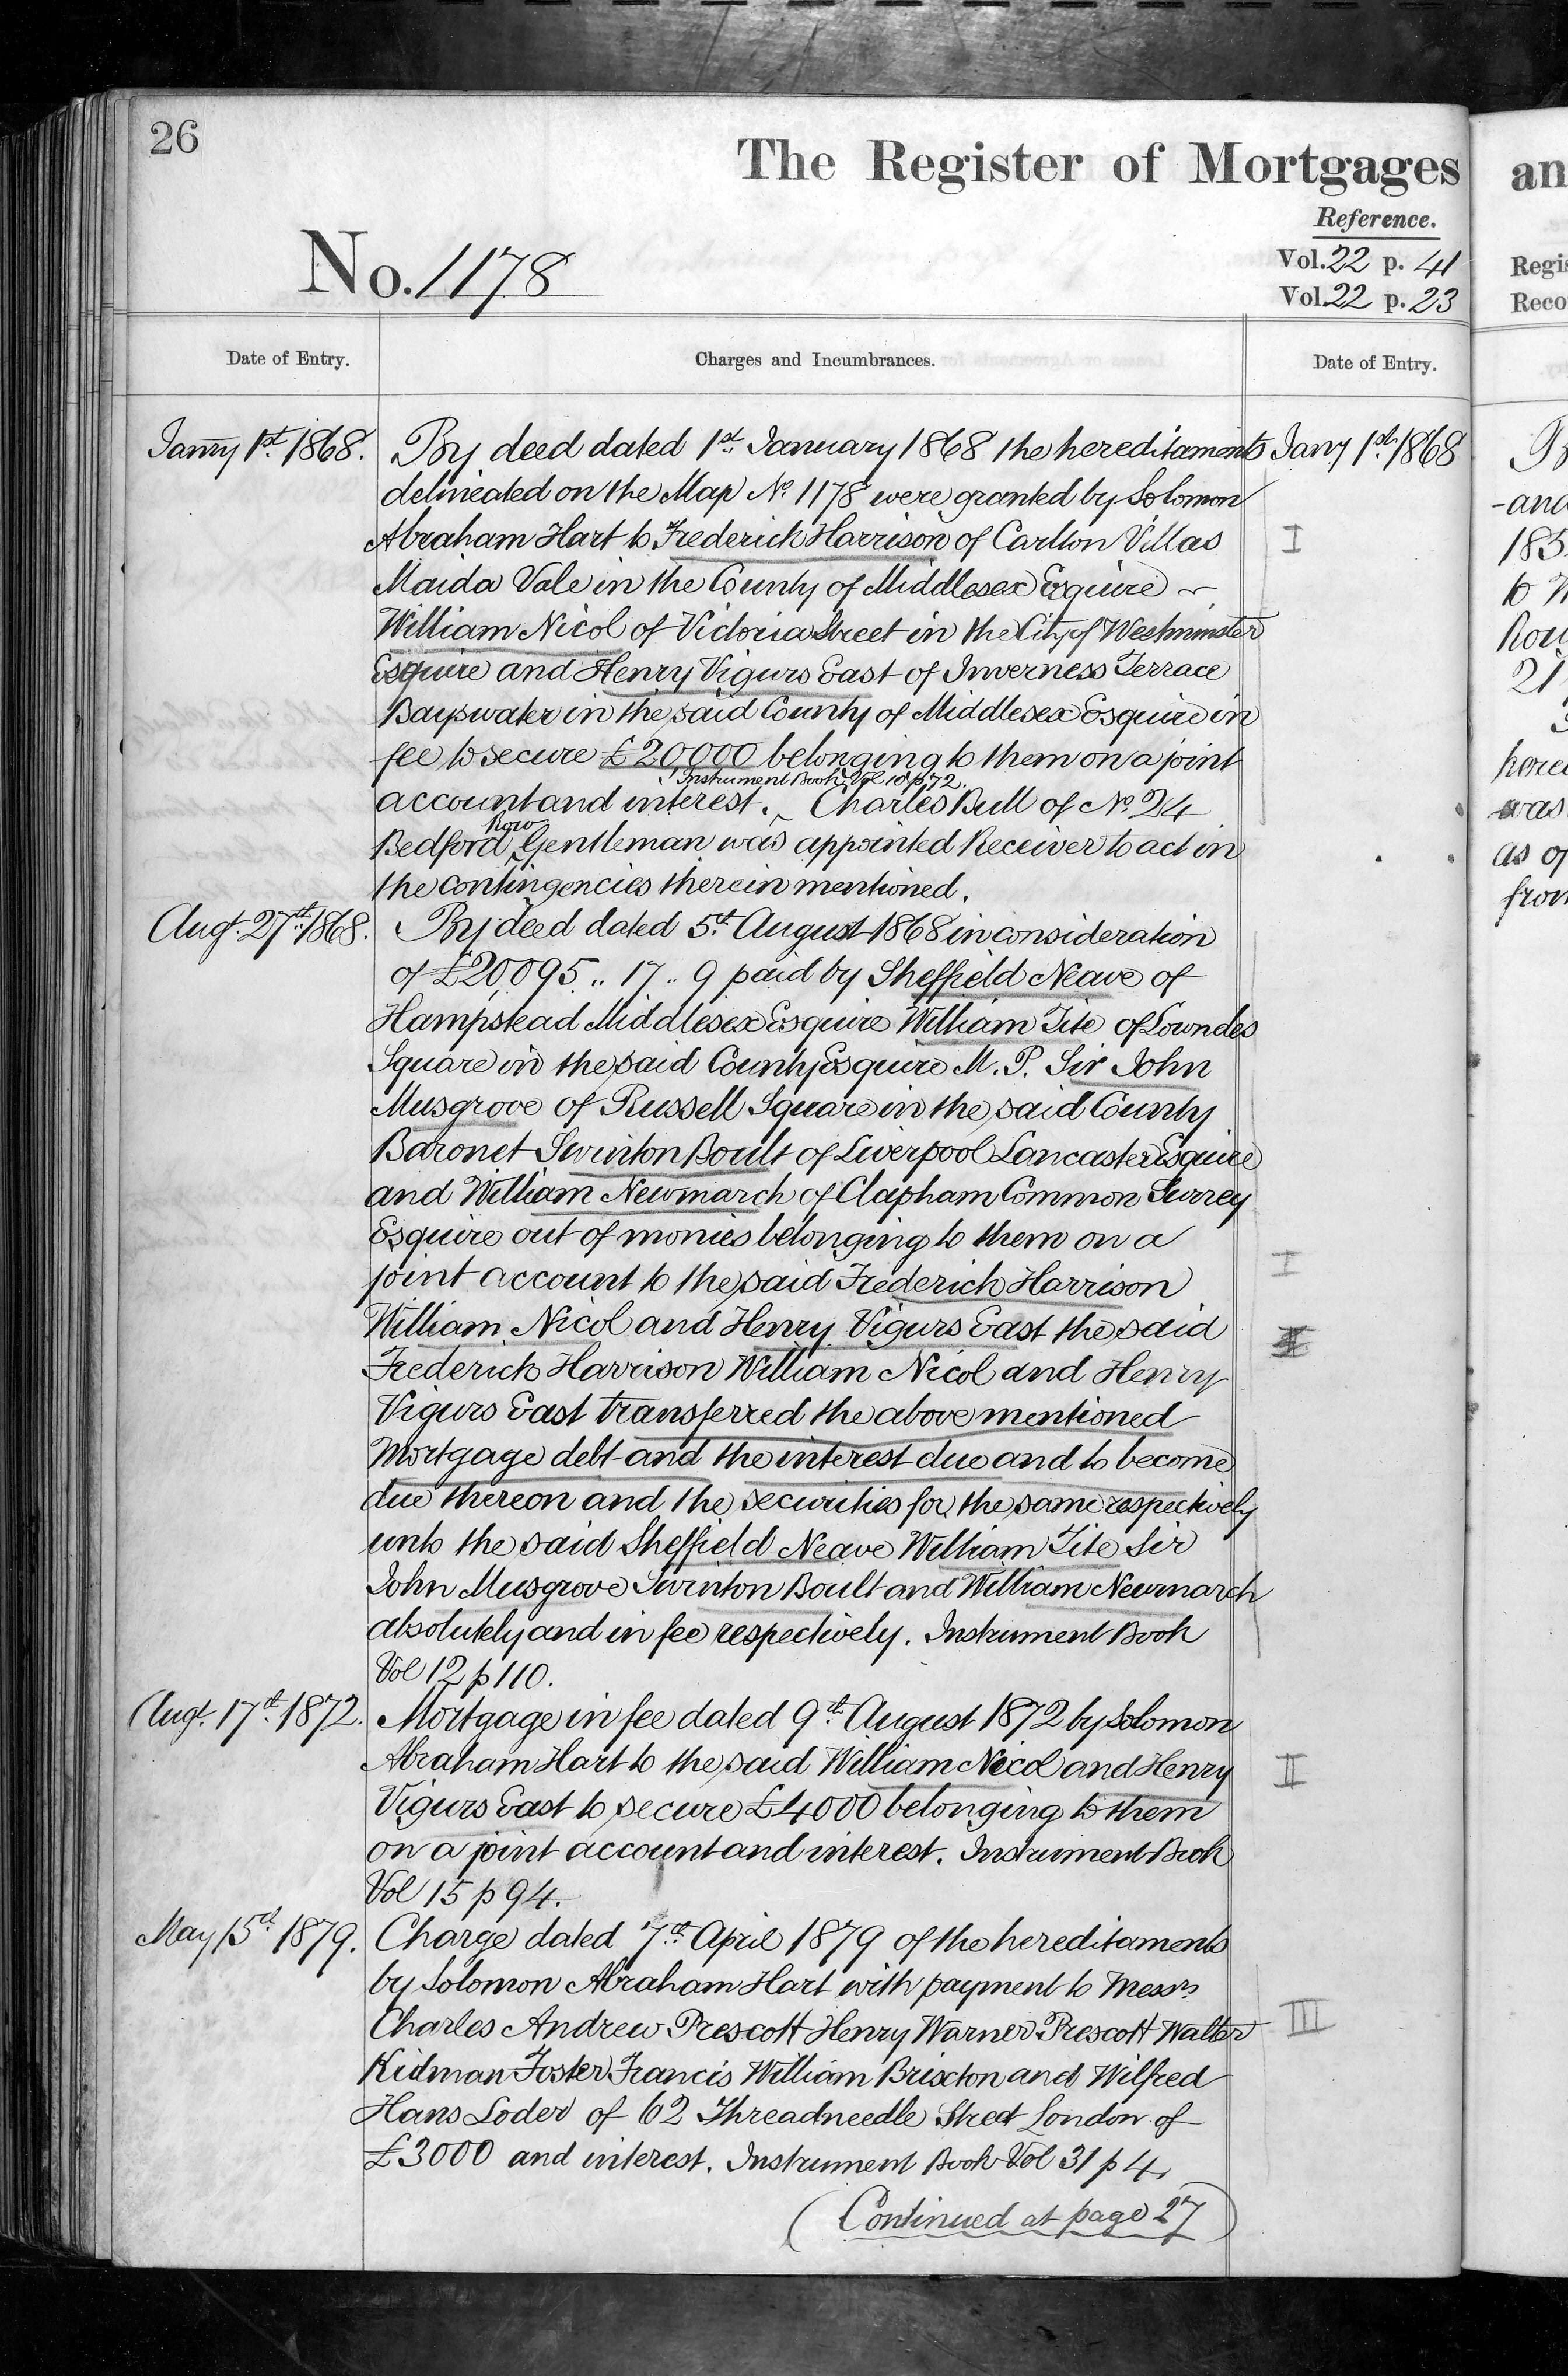 26
The Register of Mortgages
an
Reference.
No. 1178
Vol. 22 p. 41
Regis
Vol. 22 p. 23
Reco
Date of Entry.
Charges and Incumbrances.
Date of Entry.
Janry 1st. 1868.
By deed dated 1st. January 1868 the hereditaments
Janry 1st. 1868
delineated on the Map No. 1178 were granted by Solomon
-and
Abraham Hart to Frederick Harrison of Carlton Villas
I
185
Maida Vale in the County of Middlesex Esquire —
William Nicol of Victoria Street in the City of Westminster
Esquire and Henry Vigurs East of Inverness Terrace
21
Bayswater in the said County of Middlesex Esquire in
fee to secure £20,000 belonging to them on a joint
Instrument Book Vol 10 p 72.
account and interest. ‸ Charles Bull of No. 24
was
Row
Bedford ‸ Gentleman was appointed Receiver to act in
as of
the contingencies therein mentioned.
from
Augt. 27th. 1868.
By deed dated 5th. August 1868 in consideration
of £20,095 .. 17 .. 9 paid by Sheffield Neave of
Hampstead Middlesex Esquire William Tite of Lowndes
Square in the said County Esquire M. P. Sir John
Musgrove of Russell Square in the said County
Baronet Swinton Boult of Liverpool Lancaster Esquire
and William Newmarch of Clapham Common Surrey
Esquire out of monies belonging to them on a
I
joint account to the said Frederick Harrison
William Nicol and Henry Vigurs East the said
Frederick Harrison William Nicol and Henry
Vigurs East transferred the above mentioned
Mortgage debt and the interest due and to become
due thereon and the securities for the same respectively
unto the said Sheffield Neave William Tite Sir
John Musgrove Swinton Boult and William Newmarch
absolutely and in fee respectively. Instrument Book
Vol 12 p 110.
Augt. 17th. 1872.
Mortgage in fee dated 9th. August 1872 by Solomon
Abraham Hart to the said William Nicol and Henry
II
Vigurs East to secure £4000 belonging to them
on a joint account and interest. Instrument Book
Vol 15 p 94.
May 15th. 1879.
Charge dated 7th. April 1879 of the hereditaments
by Solomon Abraham Hart with payment to Messrs
Charles Andrew Prescott Henry Warner Prescott Walter
III
Kidman Foster Francis William Brixton and Wilfred
Hans Loder of 62 Threadneedle Street London of
£3000 and interest. Instrument Book Vol 31 p 4.
(Continued at page 27)